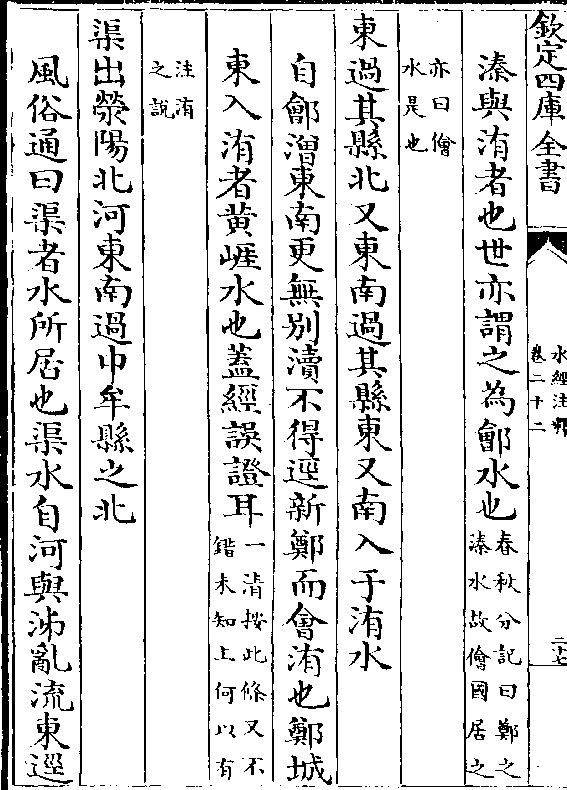 欽定四庫全書
水經注釋
卷二十二
二十七
溱與洧者也世亦謂之為鄶水也
春秋分記曰鄭之
溱水故儈國居之
亦曰儈
水是也
東過其縣北又東南過其縣東又南入于洧水
自鄶潧東南更無别瀆不得逕新鄭而會洧也鄭城
東入洧者黄崖水也蓋經誤證耳
一清按此條又不
錯未知上何以有
注洧
之說
渠出滎陽北河東南過中牟縣之北
風俗通曰渠者水所居也渠水自河與泲亂流東逕